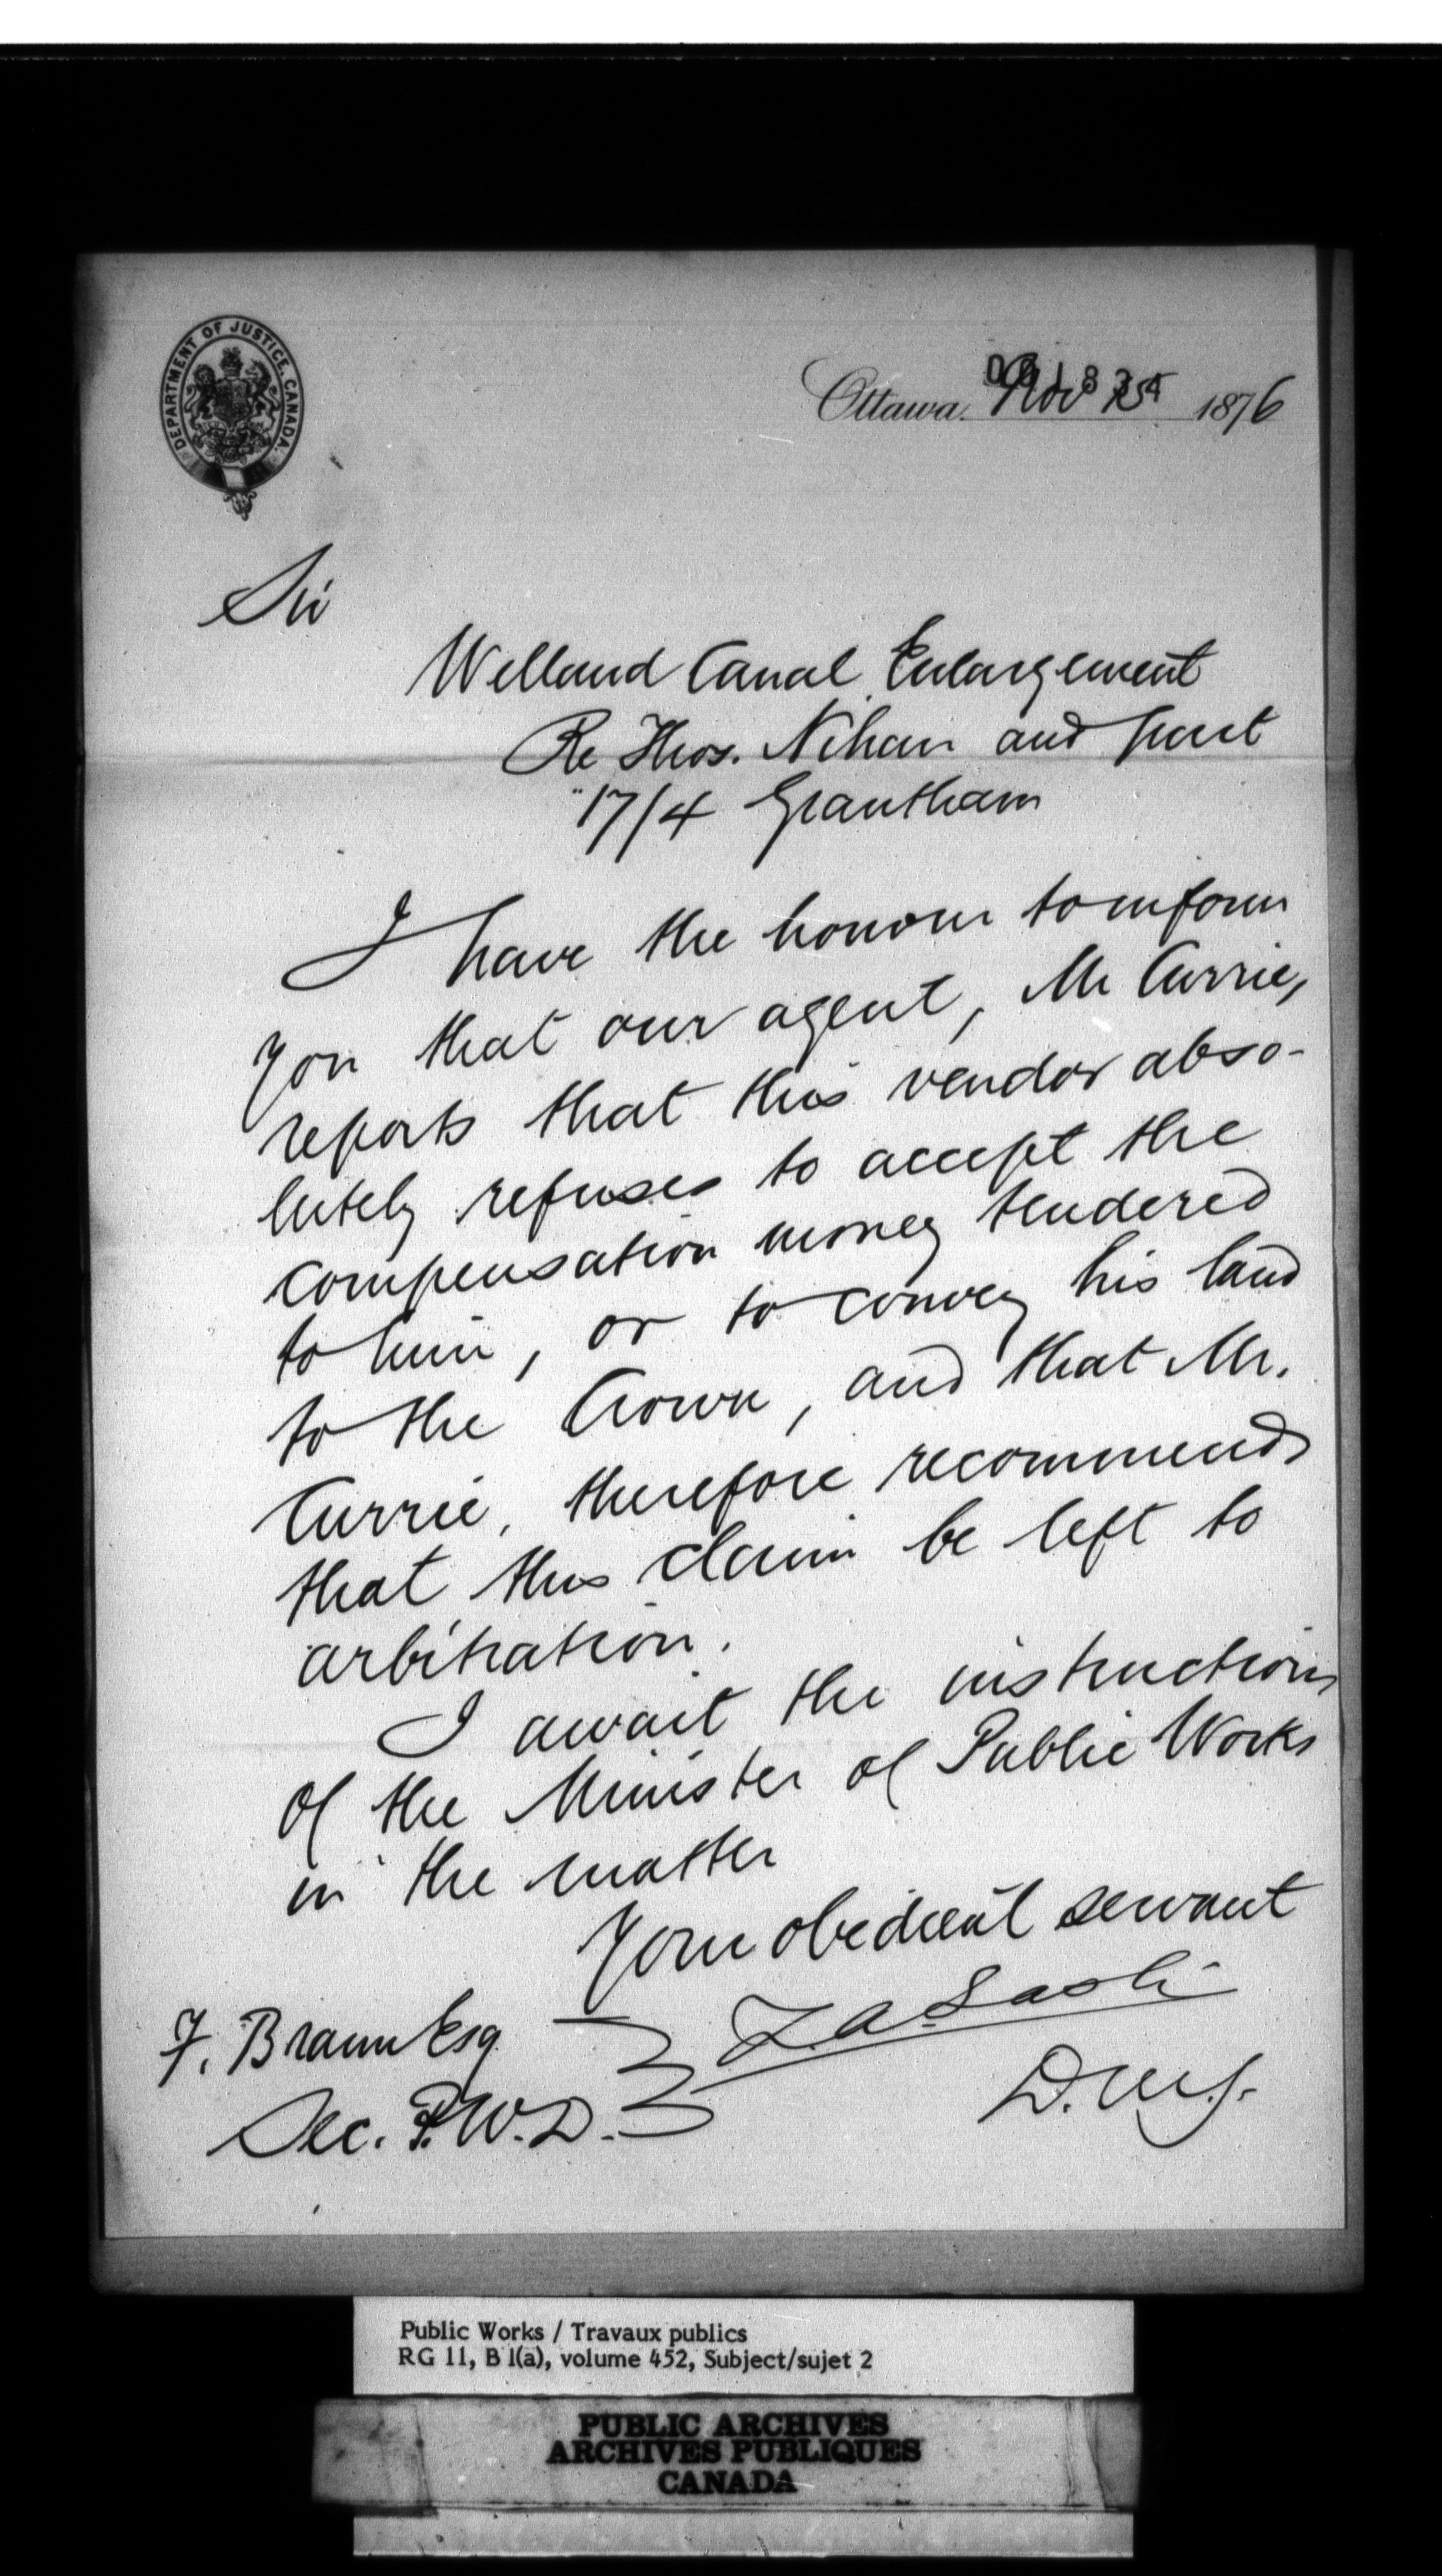 DEPARTMENT OF JUSTICE, CANADA.
Ottawa. Nov 1876
Sir
Welland Canal Enlargement
Re Thos. Nihan and part
17/4 Grantham
I have the honour to inform
you that our agent, Mr Currie,
reports that this vendor abso-
lutely refuses to accept the
compensation money tendered
to him, or to convey his land
to the Crown, and that Mr.
Currie, therefore recommends
that this claim be left to
arbitration.
I await the instructions
of the Minister of Public Works
in the matter
Your obedient servant
Z. A. Lash
D.M.J.
F. Braun Esq
Sec. P.W.D.
Public Works / Travaux publics
RG 11, B 1(a), volume 452, Subject/sujet 2
PUBLIC ARCHIVES
ARCHIVES PUBLIQUES
CANADA